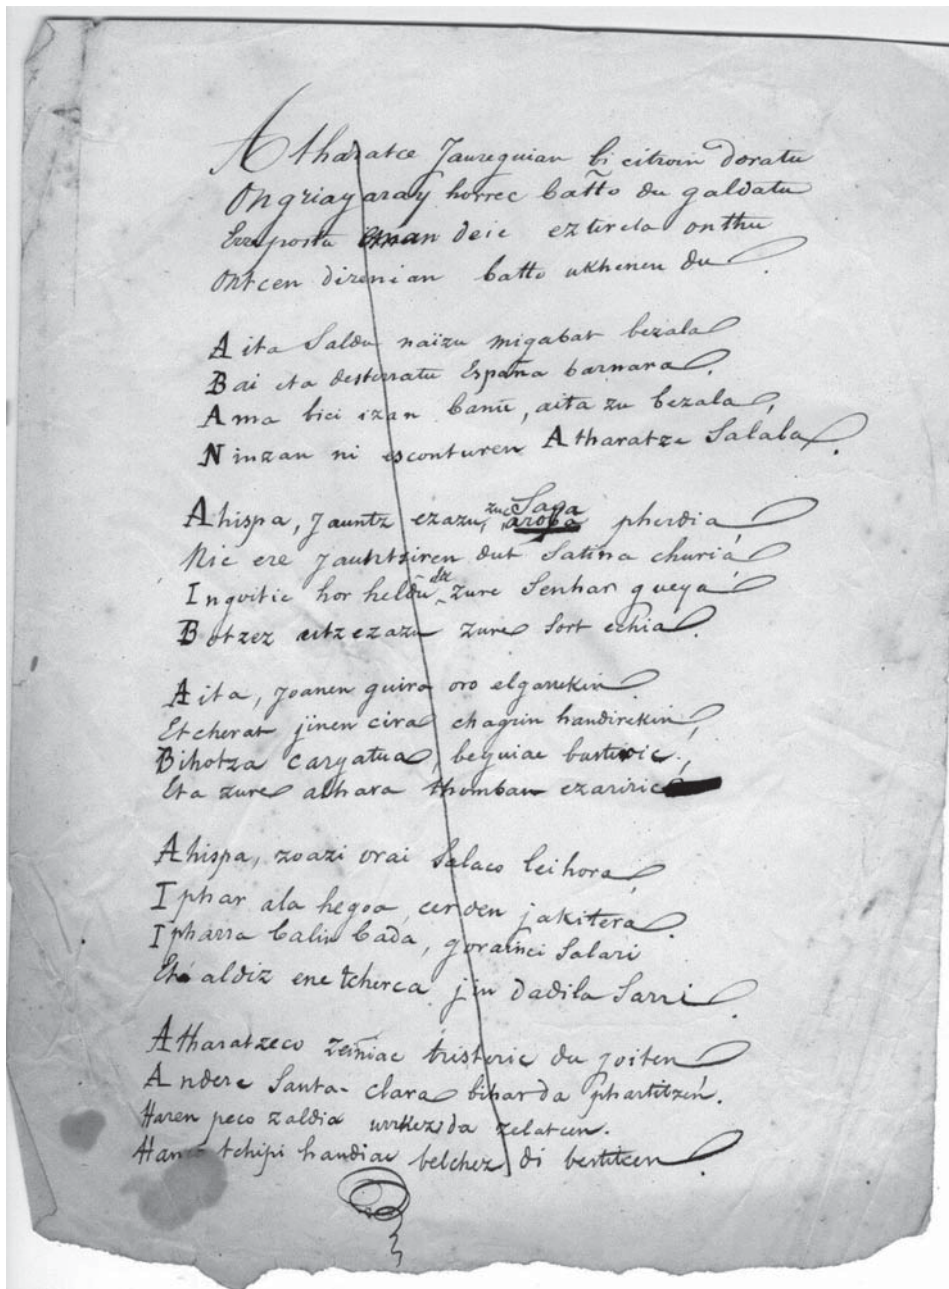 Atharatce Jaureguian bi citroin doratu
Ongriagaray horrec batto du galdatu
Erreposta eman deie eztirela onthu
Ontcen direnian batto ukhenen du.
Aita Saldu naïzu migabat bezala
Bai eta desterratu España barnara.
Ama bici izan banü, aita zu bezala,
Ninzan ni esconturen Atharatze Salala.
Ahispa, jauntz ezazu, zuc Saya pherdia,
Nic ere jauntziren dut Satina churia,
Ingoitic hor heldu da zure Senhar gueya,
Botzez eitzezazu zure Sort echia.
Aita, joanen guira oro elgarrekin.
Etcherat jinen cira chagrin handirekin,
Bihotza cargatua, beguiac bustiric,
Eta zure alhara thomban ezariric
Ahispa, zoazi orai Salaco leihora,
Iphar ala hegoa, cer den jakitera.
Ipharra balin bada, goraïnci Salari
Eta aldiz ene tcherca jin dadila Sarri.
Atharatzeco zeiniac tristeric du joiten
Andere Santa-clara bihar da phartitzen.
Haren peco zaldia urrhez da zelatcen.
tchipi handiac belchez di bestitcen.